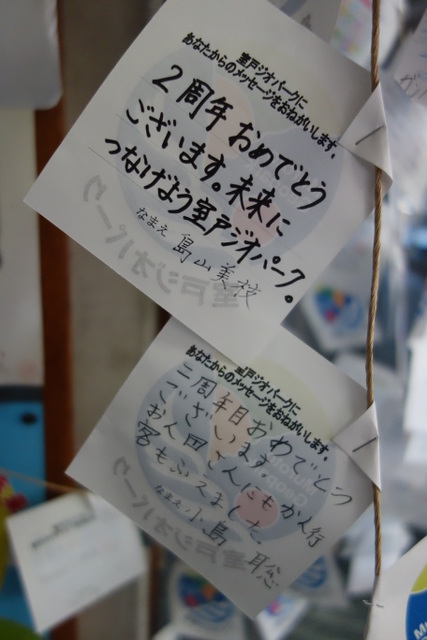 室戸ジオパークに
あなたからのメッセージをおねがいします。
2周年おめでとう
ございます。未来に
つなげよう室戸ジオパーク。
なまえ 島山美枝
室戸ジオパークに
あなたからのメッセージをおねがいします。
二周年目おめでとう
ございます。
お人田さんにもか人行
客もふえました
なまえ 小島 聡